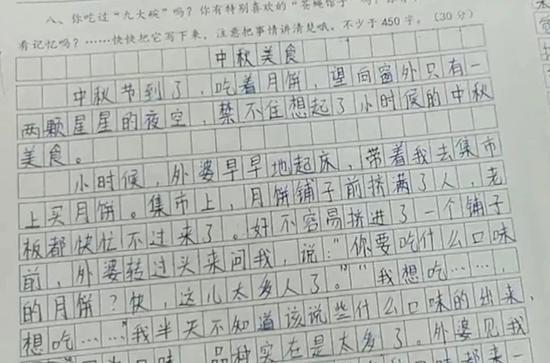 八、你吃过“九大碗”吗？你有特别喜欢的“苍蝇馆子”吗？你有
看记忆吗？……快快把它写下来，注意把事情讲清楚哦。不少于 450 字。（30 分）
中秋美食
中秋节到了，吃着月饼，望向窗外只有一
两颗星星的夜空，禁不住想起了小时候的中秋
美食。
小时候，外婆早早地起床，带着我去集市
上买月饼。集市上，月饼铺子前挤满了人，老
板都快忙不过来了。好不容易挤进了一个铺子
前，外婆转过头来问我，说：“你要吃什么口味
的月饼？快，这儿太多人了。”“我想吃……，
想吃……”我半天不知道该说些什么口味的出来，
品种实在是太多了。外婆见我